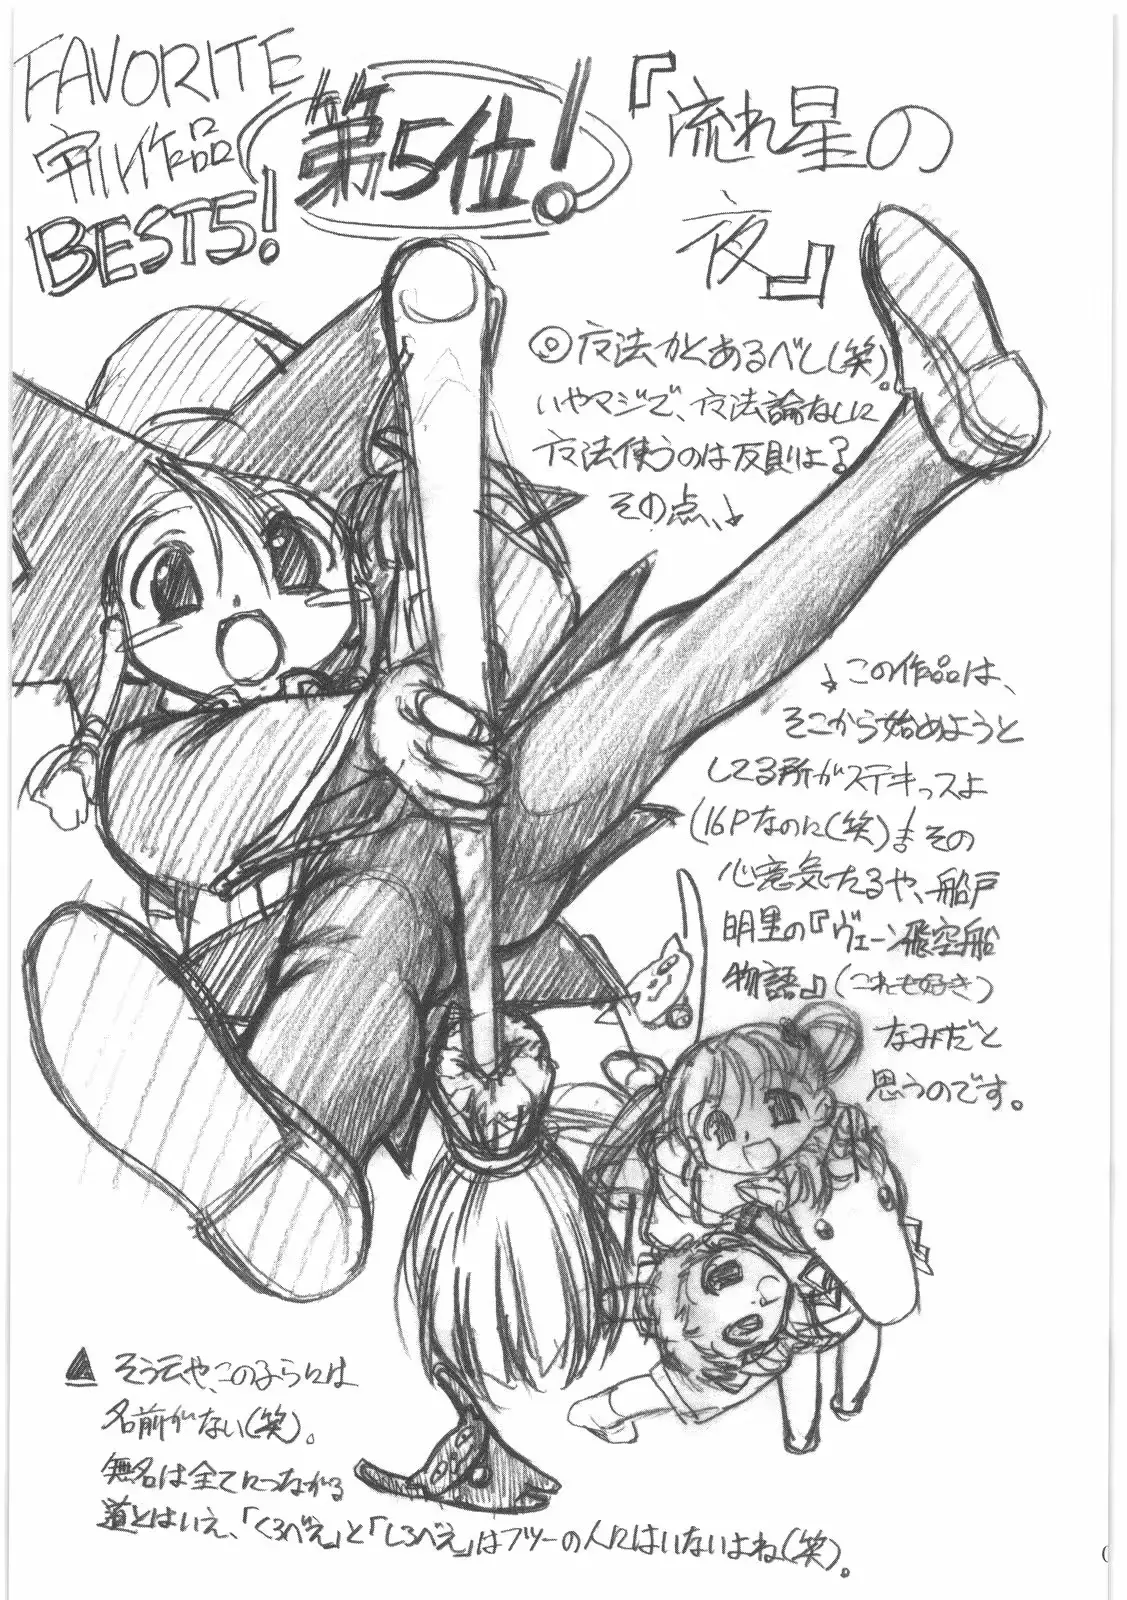 FAVORITE
作品
BEST5!
第5位!
『流れ星の
夜』
◎ 方法かくあるべし(笑)。
いやマジで、方法論なしに
方法使うのは反則よる
その点、↓
↓この作品は、
そこから始めようと
してる所がステキっスよ
(16Pなのに(笑)!その
心意気たるや、船戸
明里の『ヴェーン飛空船
物語』(これも好き)
なみだと
思うのです。
▲ そう云や、このコらには
名前がない(笑)。
無名は全てにつながる
道とはいえ、「くろべえ」と「しろべえ」はフツーの人にはいないよね(笑)。